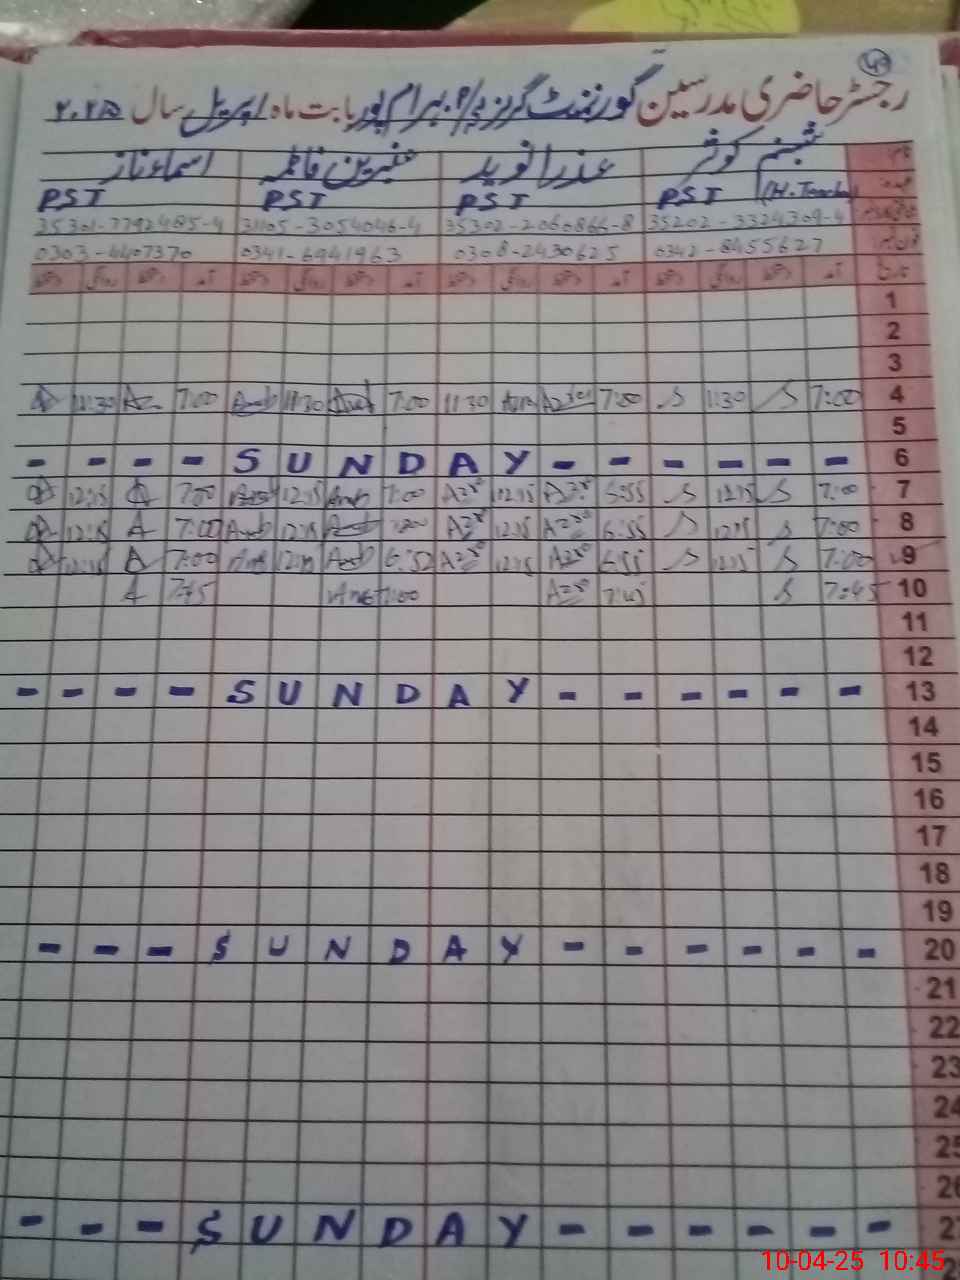 ۴۰
رجسٹر حاضری مدرسین گورنمنٹ گرلز پ/۴ بہرام پور بابت ماہ اپریل سال ۲۰۲۵
شبنم کوثر عذرا نوید عنبرین فاطمہ اسماء ناز
PST (H. Teacher) PST PST PST
35202-3324309-4 35302-2060866-8 31105-3054046-4 35301-7792485-4
0342-8455627 0308-2430625 0341-6941963 0303-4407370
تاریخ آمد دستخط روانگی دستخط آمد دستخط روانگی دستخط آمد دستخط روانگی دستخط آمد دستخط روانگی دستخط
1
2
3
4 7:00 11:30 7:00 11:30 7:00 11:30 7:00 11:30
5
6 - - - - S U N D A Y - - - - - -
7 7:00 12:15 6:55 12:15 7:00 12:15 7:00 12:15
8 7:00 12:15 6:55 12:15 7:00 12:15 7:00 12:15
9 7:00 12:15 6:55 12:15 6:52 12:15 7:00 12:15
10 7:45 7:45 7:00 7:45
11
12
13 - - - - S U N D A Y - - - - - -
14
15
16
17
18
19
20 - - - S U N D A Y - - - - - -
21
22
23
24
25
26
27 - - - S U N D A Y - - - - - -
10-04-25 10:45